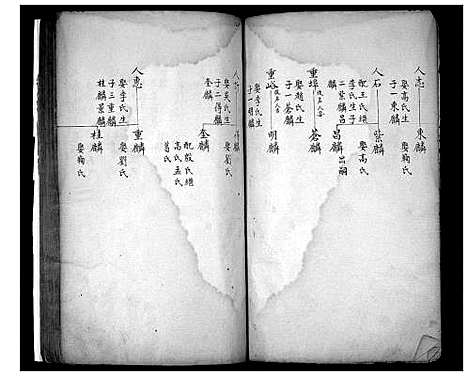 人志
娶高氏生
子一東麟
東麟
娶鞠氏
人石
配王氏继
李氏生子
二紫麟昌
麟
紫麟
娶高氏
昌麟
出嗣
重埠
娶趙氏生
子一蒼麟
蒼麟
重峪
娶李氏生
子一明麟
明麟
娶吴氏生
子二得麟
奎麟
娶劉氏
奎麟
配殷氏继
高氏孟氏
葛氏
人惠
娶李氏生
子三重麟
桂麟景麟
重麟
娶劉氏
桂麟
娶鞠氏